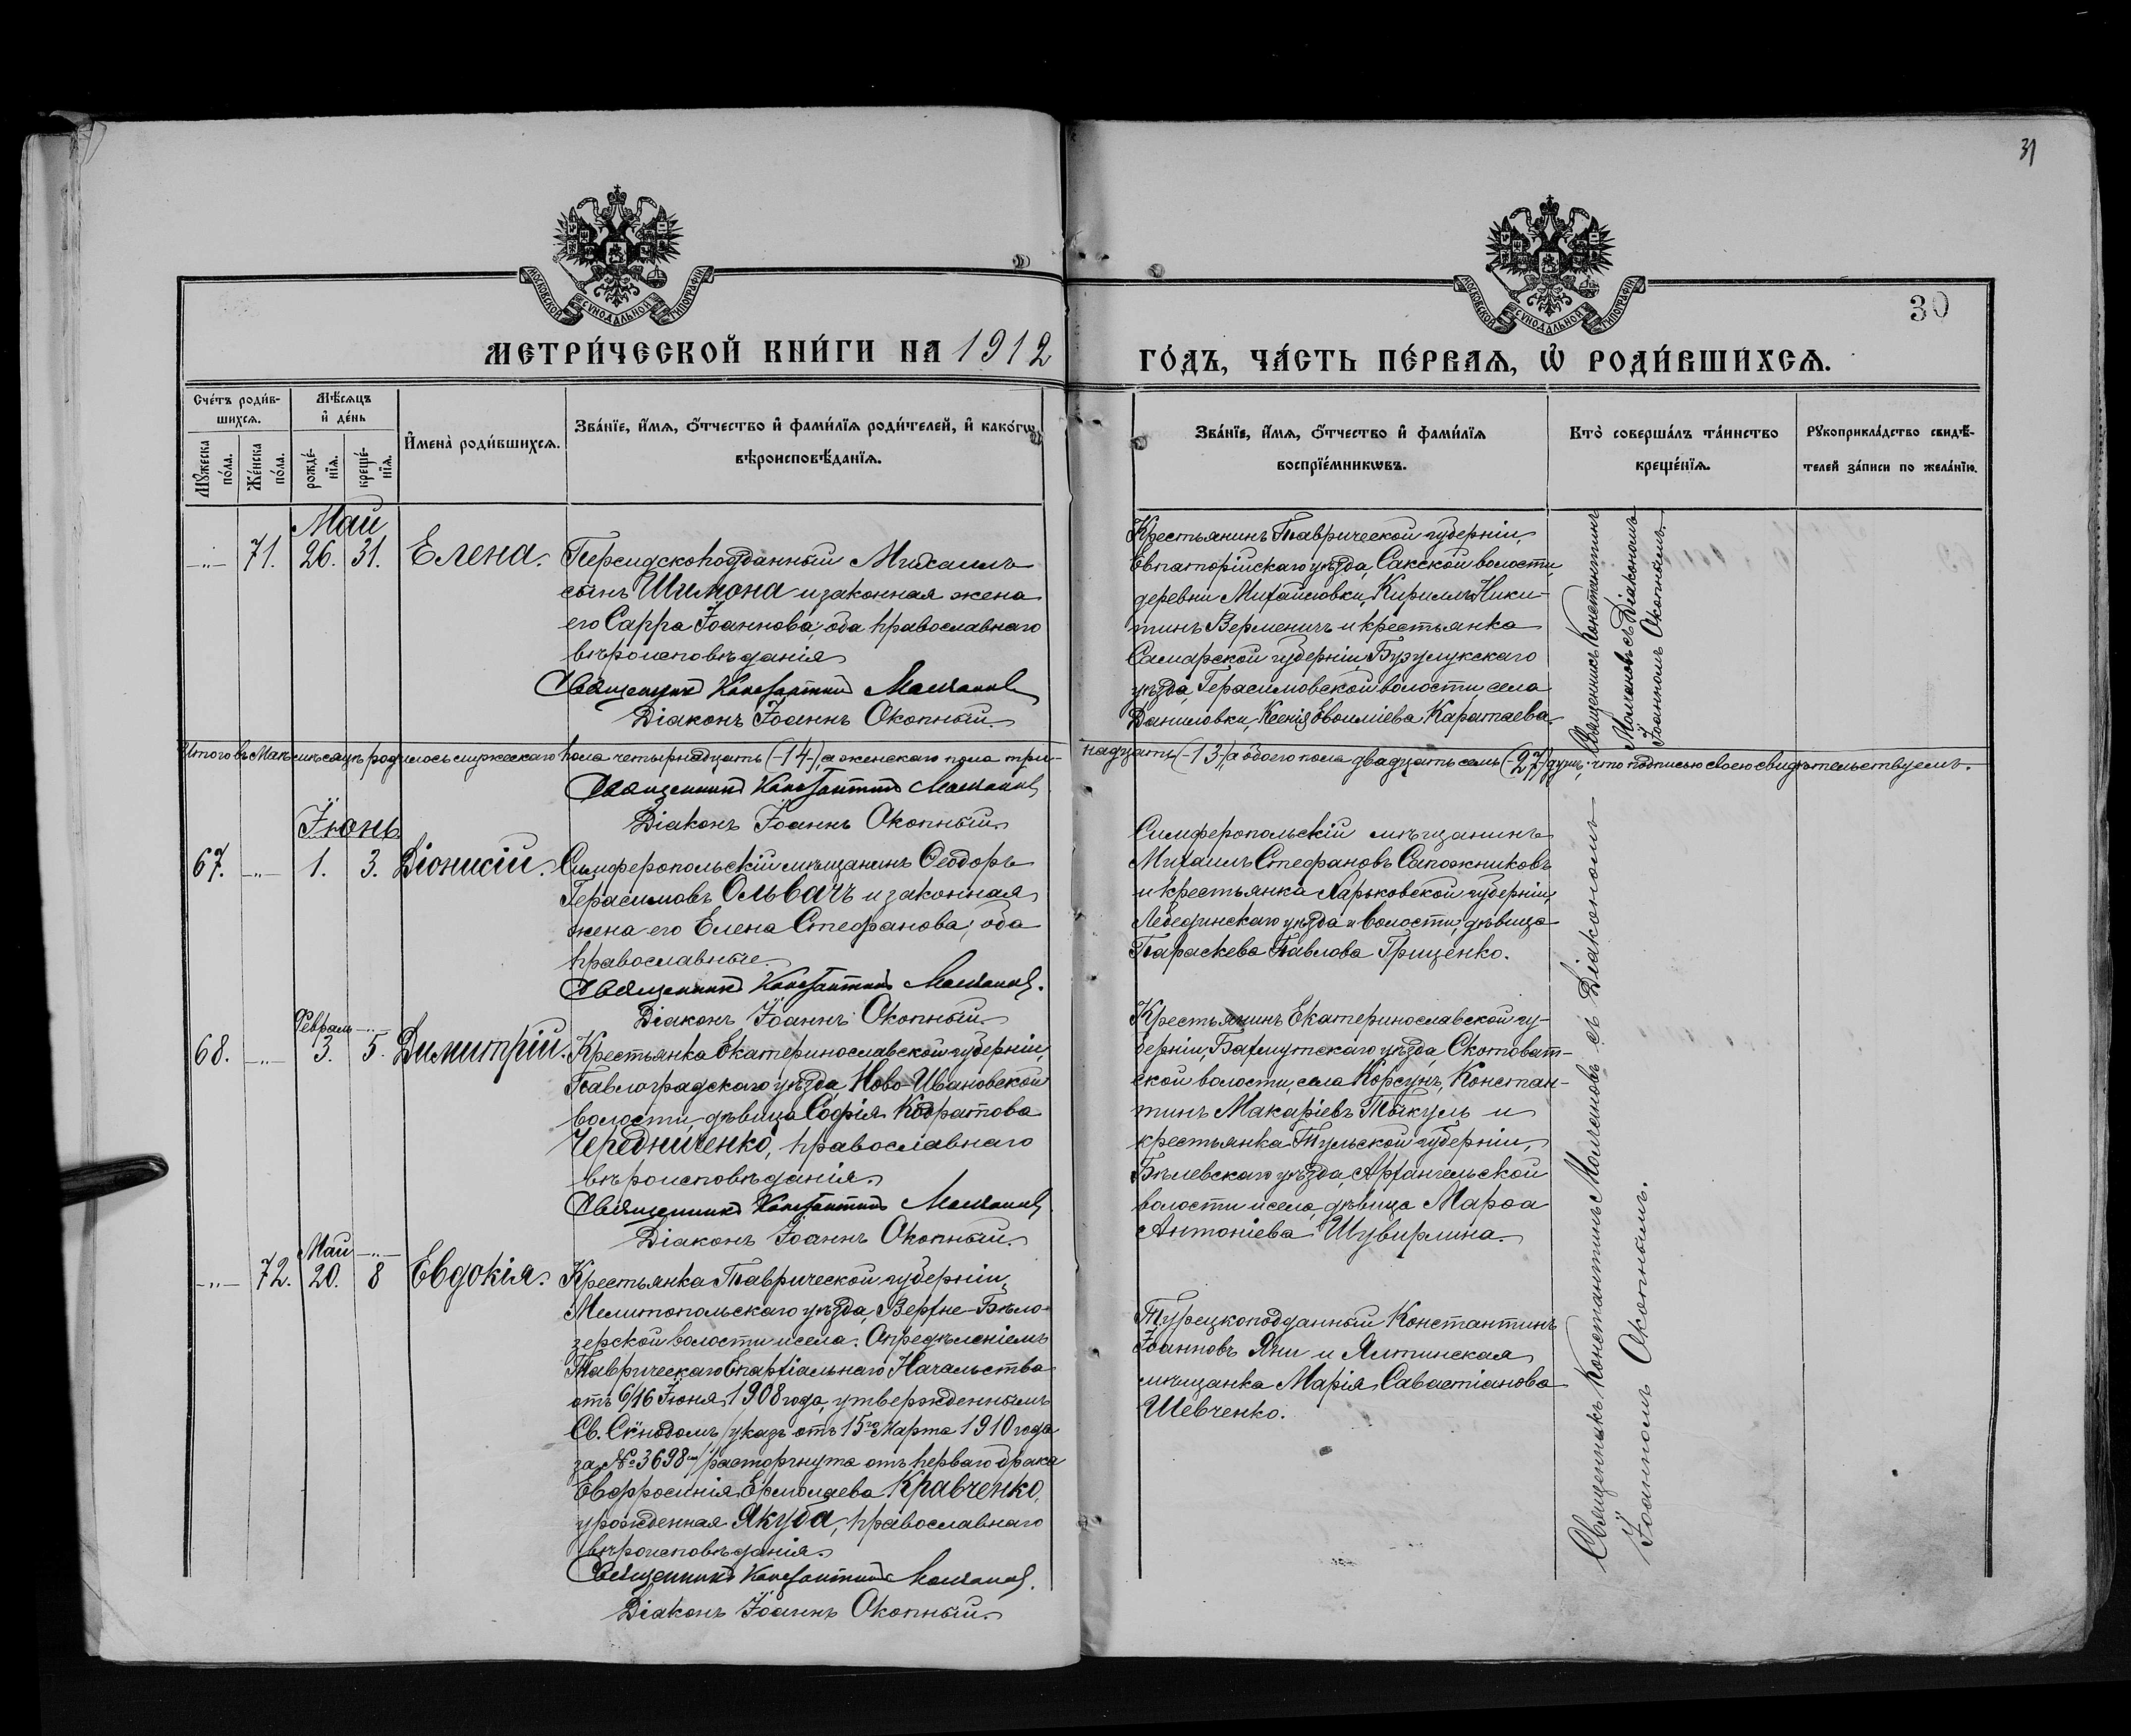 31
МОСКОВСКОЙ СѴНОДАЛЬНОЙ ТИПОГРАФІИ
МОСКОВСКОЙ СѴНОДАЛЬНОЙ ТИПОГРАФІИ
30
МЕТРИ́ЧЕСКОЙ КНИ́ГИ НА 1912
ГО́ДЪ, ЧА́СТЬ ПЕ́РВАѦ, Ѡ РОДИ́ВШИХСѦ.
Сче́тъ роди́в-
шихсѧ.
Мꙋ́жеска
по́ла.
Же́нска
по́ла.
Мѣ́сѧцъ
и де́нь
рожде́-
нїѧ.
креще́-
нїѧ.
И҆мена̀ роди́вшихсѧ.
Зва́нїе, и҆́мѧ, ѻ҆́тчество и҆ фами́лїѧ роди́телей, и҆ како́гѡ
вѣроисповѣ́данїѧ.
Зва́нїе, и҆́мѧ, ѻ҆́тчество и҆ фами́лїѧ
воспрїе́мникѡвъ.
Кто̀ соверша́лъ та́инство
креще́нїѧ.
Рꙋкоприкла́дство свидѣ́-
телей за́писи по жела́нїю.
Май
-„- 71. 26. 31. Елена.
Персидскоподданный Михаилъ
сынъ Шимона и законная жена
его Сарра Іоаннова; оба православнаго
вѣроисповѣданія
Священникъ Константинъ Молчановъ
Діаконъ Іоаннъ Окопный.
Крестьянинъ Таврической губерніи,
Евпаторійскаго уѣзда, Сакской волости,
деревни Михайловки, Кириллъ Ники-
тинъ Верменичъ и крестьянка
Самарской губерніи, Бузулукскаго
уѣзда, Герасимовской волости, села
Даниловки, Ксенія Евфиміева Каратаева.
Священникъ Константинъ
Молчановъ съ Діакономъ
Іоанномъ Окопнымъ.
Итого въ Маѣ мѣсяцѣ родилось мужескаго пола четырнадцать (-14-), а женскаго пола три-
надцать (-13-), а обоего пола двадцать семь (-27-) душъ, что подписью своею свидѣтельствуемъ.
Священникъ Константинъ Молчановъ
Діаконъ Іоаннъ Окопный.
Іюнь
67. -„- 1. 3. Діонисій.
Симферопольскій мѣщанинъ Ѳеодоръ
Герасимовъ Ольвачъ и законная
жена его Елена Стефанова; оба
православные.
Священникъ Константинъ Молчановъ.
Діаконъ Іоаннъ Окопный.
Симферопольскій мѣщанинъ
Михаилъ Стефановъ Сапожниковъ
и крестьянка Харьковской губерніи,
Лебединскаго уѣзда и волости, дѣвица
Параскева Павлова Гриценко.
Февраль -„-
68. -„- 3. 5. Димитрій.
Крестьянка Екатеринославской губерніи,
Павлоградскаго уѣзда, Ново-Ивановской
волости, дѣвица Софія Кодратова
Чередниченко, православнаго
вѣроисповѣданія.
Священникъ Константинъ Молчановъ
Діаконъ Іоаннъ Окопный.
Крестьянинъ Екатеринославской гу-
берніи, Бахмутскаго уѣзда, Скотоват-
ской волости, села Корсунь, Констан-
тинъ Макаріевъ Такуль и
крестьянка Тульской губерніи,
Бѣлевскаго уѣзда, Архангельской
волости и села, дѣвица Марѳа
Антоніева Шувирлина.
Май -„-
-„- 72. 20. 8 Евдокія.
Крестьянка Таврической губерніи,
Мелитопольскаго уѣзда, Верхне-Бѣло-
зерской волости и села. Опредѣленіемъ
Таврическаго Епархіальнаго Начальства
отъ 6/16 Іюня 1908 года, утвержденнымъ
Св. Сѵнодомъ /указъ отъ 15го Марта 1910 года
за № 3698мъ/ расторгнута отъ перваго брака
Евфросинія Ермолаева Кравченко,
урожденная Якуба, православнаго
вѣроисповѣданія.
Священникъ Константинъ Молчановъ.
Діаконъ Іоаннъ Окопный.
Турецкоподданный Константинъ
Іоанновъ Яни и Ялтинская
мѣщанка Марія Савастіанова
Шевченко.
Священникъ Константинъ Молчановъ съ Діакономъ
Іоанномъ Окопнымъ.